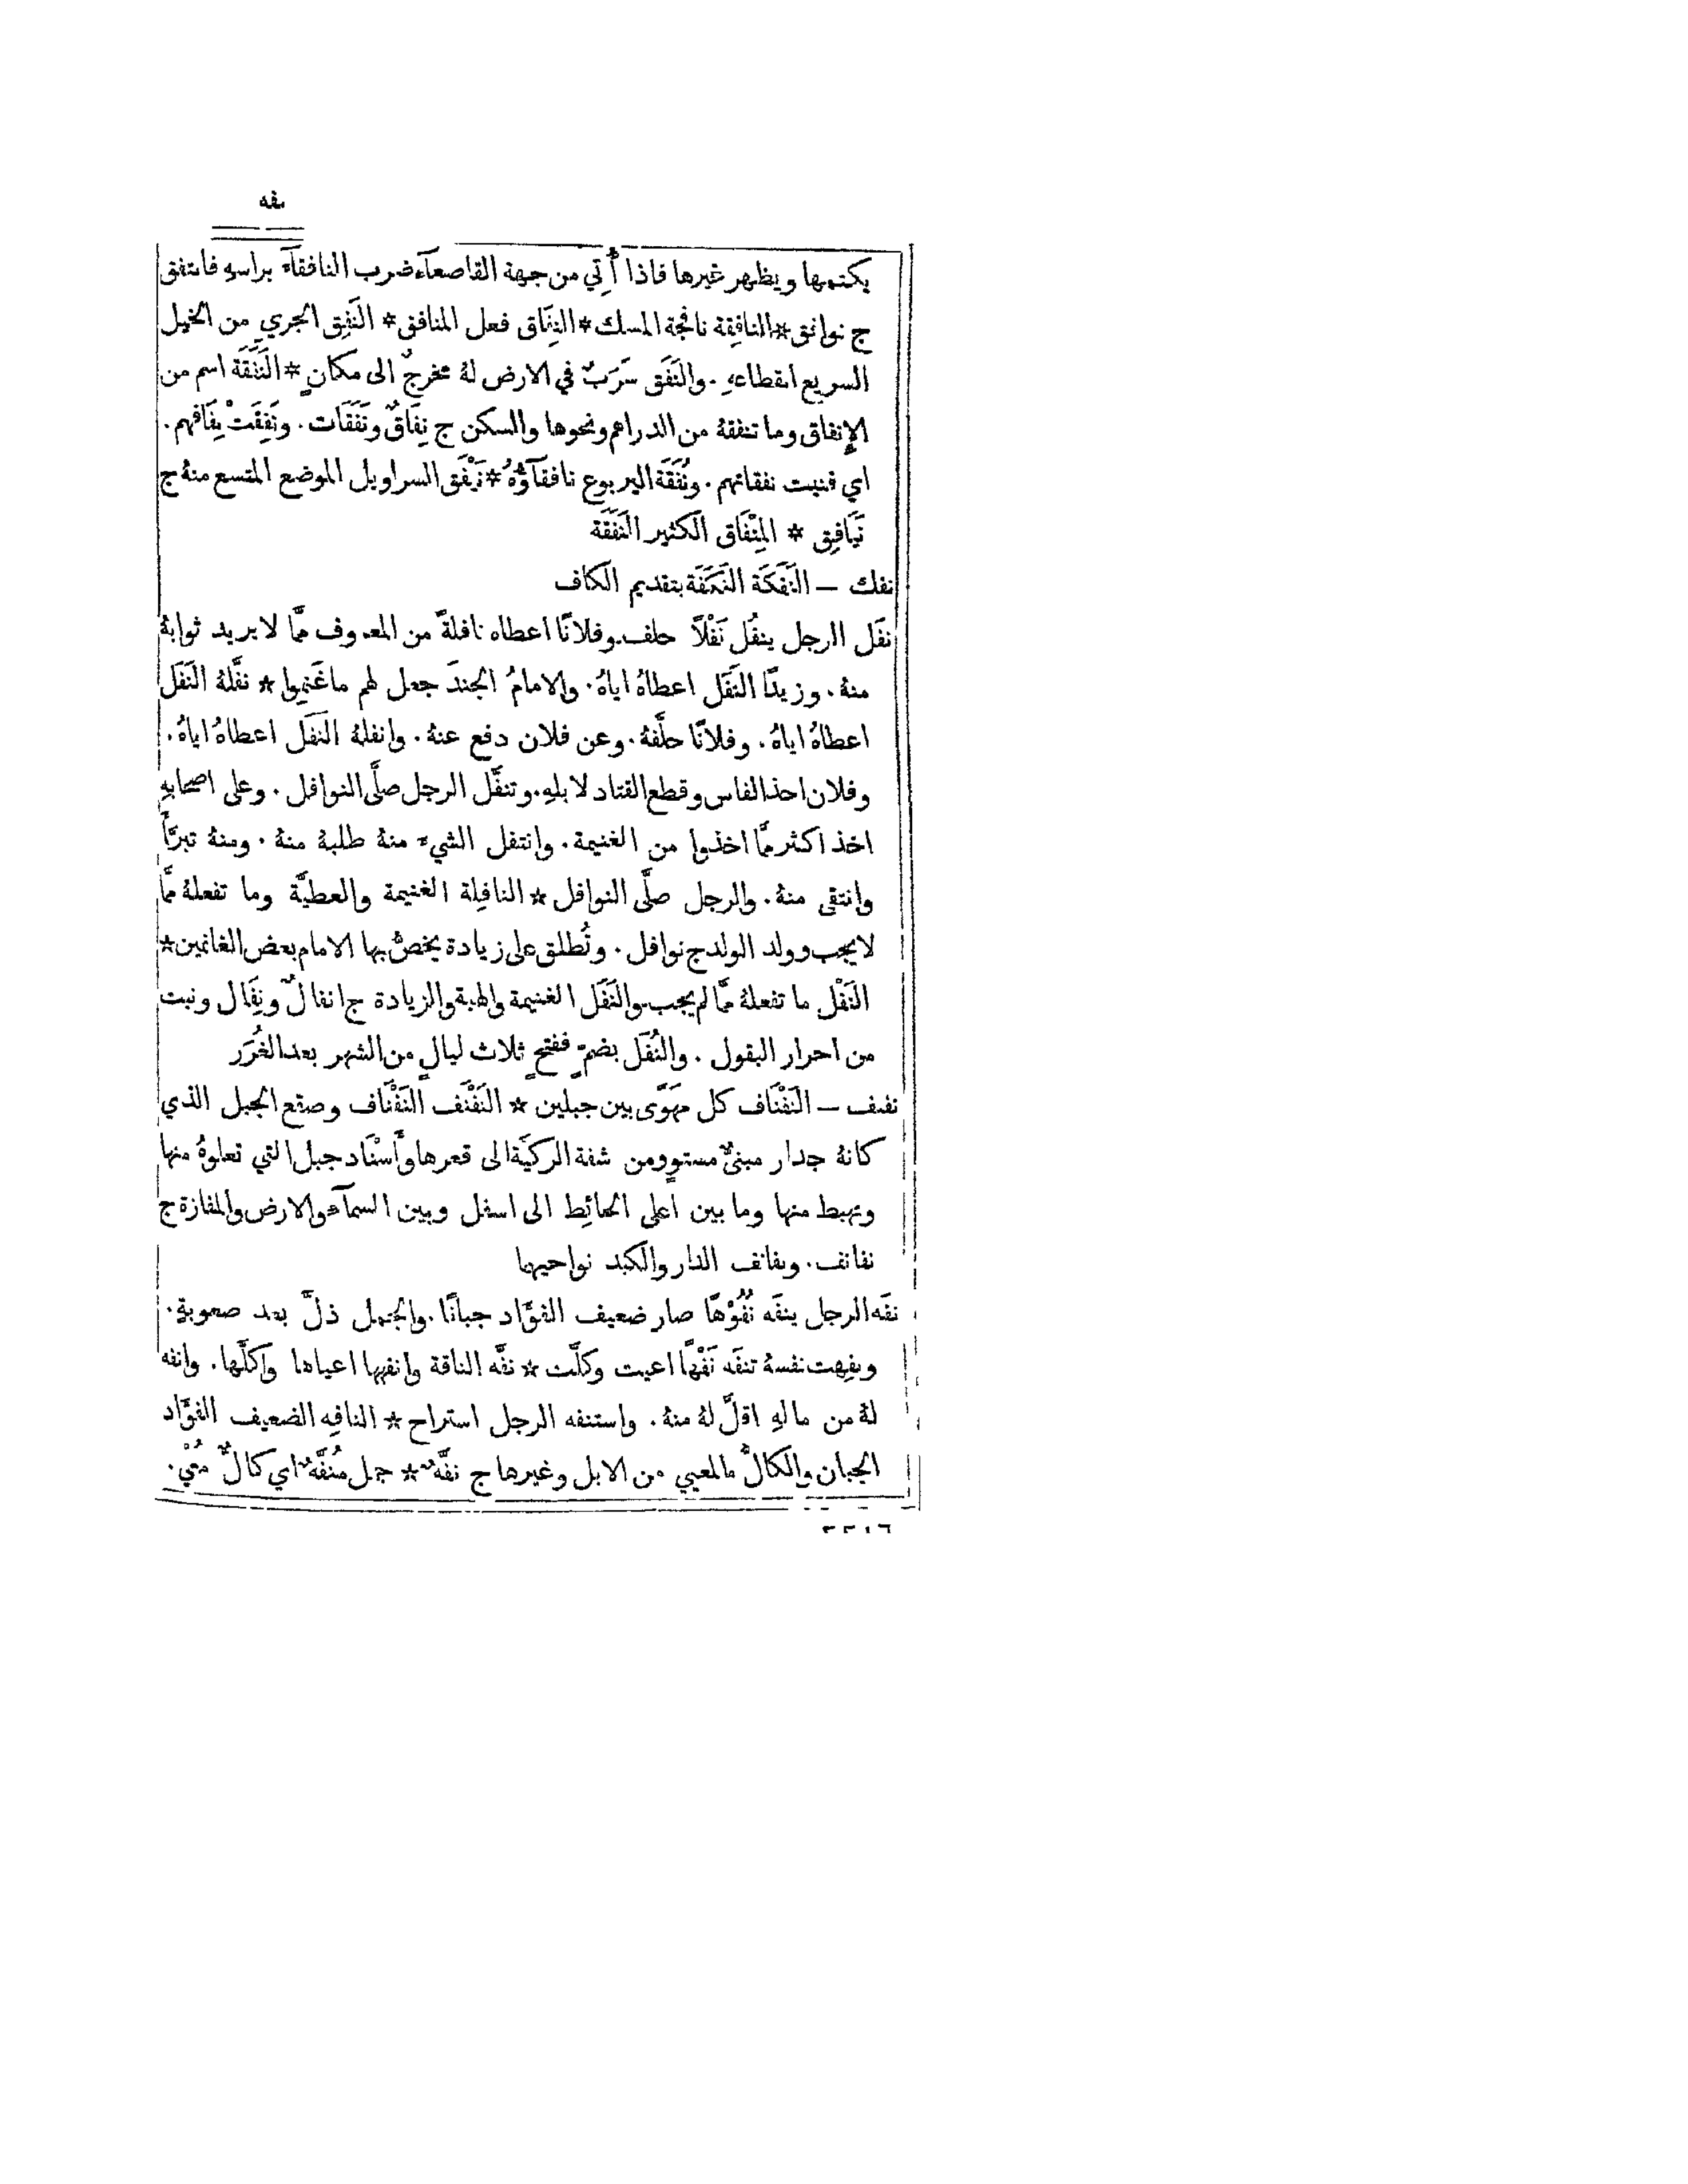 نفه
يكتمها ويظهر غيرها فاذا أُتي من جهة القاصعآء ضرب النافقآء براسهِ فانتفق
ج نوافق * النافِقة نافجة المسك * النِفَاق فعل المنافق * النَفِق الجري من الخيل
السريع انقطاعهِ . والنَفَق سَرَبٌ في الارض لهُ مخرجٌ الى مكانٍ * النَفَقَة اسم من
الإنفاق وما تنفقهُ من الدراهم ونحوها والسكن ج نِفَاقٌ ونَفَقَات . ونَفِقَتْ نِفَاقهم .
اي فنيت نفقاتهم . ونُفَقَة اليربوع نافقآؤُهُ * نَيْفَق السراويل الموضع المتسع منهُ ج
نَيَافِق * المِنْفَاق الكثير النَفَقَة
نفك — النَفَكَة النَكَفَة بتقديم الكاف
نفَل الرجل ينفُل نَفْلًا حلف . وفلانًا اعطاه نافلةً من المعروف ممَّا لا يريد ثوابهُ
منهُ . وزيدًا النَفَل اعطاهُ اياهُ . والامامُ الجندَ جعل لهم ما غَنِموا * نفَّلهُ النَفَل
اعطاهُ اياهُ . وفلانًا حلَّفهُ . وعن فلان دفع عنهُ . وانفلهُ النَفَل اعطاهُ اياهُ .
وفلان اخذ الفاس وقطع القتاد لابلهِ . وتنفَّل الرجل صلَّى النوافل . وعلى اصحابهِ
اخذ اكثر ممَّا اخذوا من الغنيمة . وانتفل الشيء منهُ طلبهُ منهُ . ومنهُ تبرَّأَ
وانتفى منهُ . والرجل صلَّى النوافل * النافِلة الغنيمة والعطيَّة وما تفعلهُ ممَّا
لا يجب وولد الولد ج نوافل . وتُطلق على زيادة يخصُّ بها الامام بعض الغانمين *
النَفْل ما تفعلهُ ممَّا لم يجب . والنَفَل الغنيمة والهبة والزيادة ج انفالٌ ونِفَال ونبت
من احرار البقول . والنُفَل بضمٍّ ففتحٍ ثلاث ليالٍ من الشهر بعد الغُرَر
نفنف — النَفْنَاف كل مَهْوًى بين جبلين * النَفْنَف النَفْنَاف وصقع الجبل الذي
كانهُ جدار مبنيٌّ مستوٍ ومن شفة الركيَّة الى قعرها وأَسْنَاد جبل التي تعلوهُ منها
وتهبط منها وما بين اعلى الحائِط الى اسفل وبين السمآء والارض والمفازة ج
نفانف . ونفانف الدار والكبد نواحيهما
نفَه الرجل ينفَه نُفُوْهًا صار ضعيف الفؤَاد جبانًا . والجمل ذلَّ بعد صعوبةٍ .
ونفِهت نفسهُ تنفَه نَفْهًا اعيت وكلَّت * نفَّه الناقة وانفهها اعياها واكلَّها . وانفه
لهُ من مالهِ اقلَّ لهُ منهُ . واستنفه الرجل استراح * النافِه الضعيف الفؤَاد
الجبان والكالُّ المعيي من الابل وغيرها ج نفَّهٌ * جمل مُنَفَّهٌ اي كالٌّ مُعْيٍ .